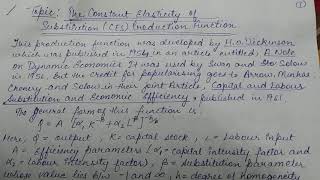 Topic: The Constant Elasticity of
Substitution (CES) Production Function
This production function was developed by H.D. Dickinson
which was published in 1954 in an article entitled, A Note
on Dynamic Economics. It was used by Swan and Solow in
in 1956. But the credit for popularising goes to Arrow, Minhas
Chenery and Solow in their joint Article, Capital and Labour
Substitution and Economic Efficiency, published in 1961
The general form of this function is
Here, q = output, K = Capital stock, L = Labour Input
A = Efficiency parameters [α₁ = Capital intensity factor and
α₂ = Labour intensity factor], β = substitution parameter
whose value lies b/w h = degree of homogeneity